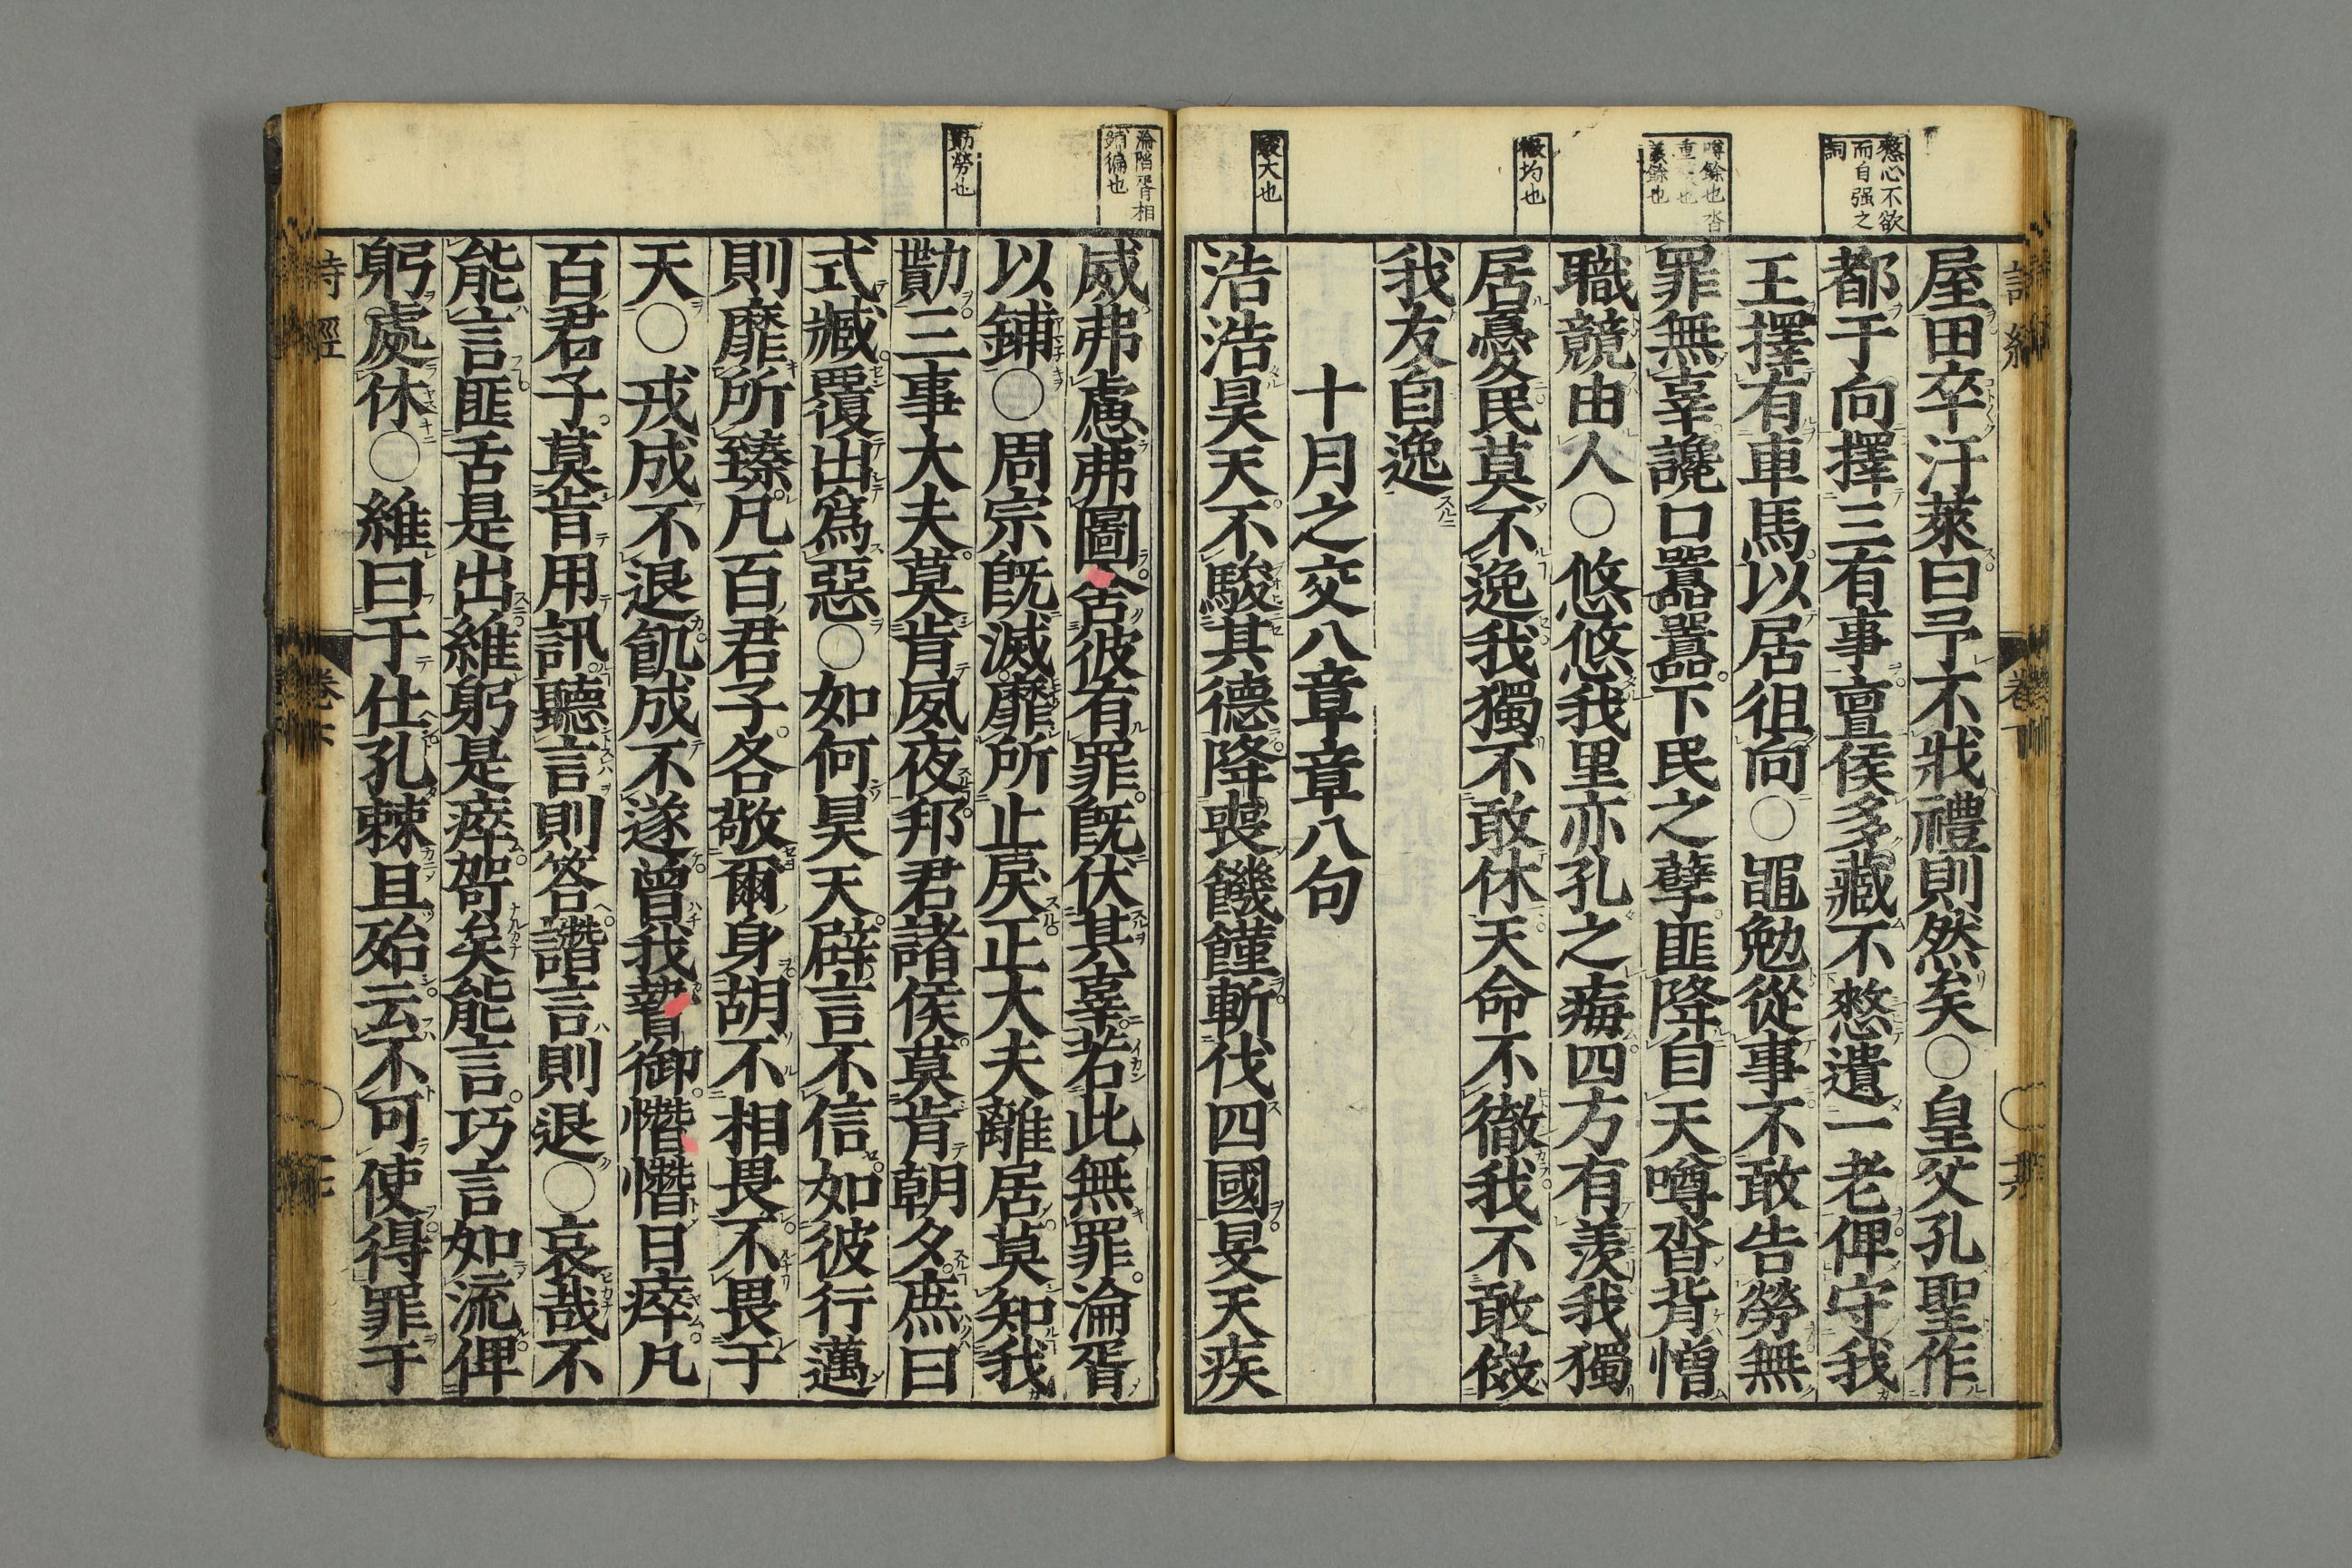 憖心不欲
而自强之
詞
噂餘也沓
重也
羨餘也
徹均也
駿大也
屋田卒汙萊曰予不戕禮則然矣○皇父孔聖作
都于向擇三有事亶侯多藏不憖遺一老俾守我
王擇有車馬以居徂向○黽勉從事不敢告勞無
罪無辜讒口囂囂下民之孽匪降自天噂沓背憎
職競由人○悠悠我里亦孔之痗四方有羨我獨
居憂民莫不逸我獨不敢休天命不徹我不敢傚
我友自逸
十月之交八章章八句
浩浩昊天不駿其德降喪饑饉斬伐四國旻天疾
淪陷胥相
鋪徧也
勩勞也
威弗慮弗圖舍彼有罪旣伏其辜若此無罪淪胥
以鋪○周宗旣滅靡所止戾正大夫離居莫知我
勩三事大夫莫肯夙夜邦君諸侯莫肯朝夕庶曰
式臧覆出爲惡○如何昊天辟言不信如彼行邁
則靡所臻凡百君子各敬爾身胡不相畏不畏于
天○戎成不退飢成不遂曾我暬御憯憯日瘁凡
百君子莫肯用訊聽言則答譖言則退○哀哉不
能言匪舌是出維躬是瘁哿矣能言巧言如流俾
躬處休○維曰于仕孔棘且殆云不可使得罪于
詩經